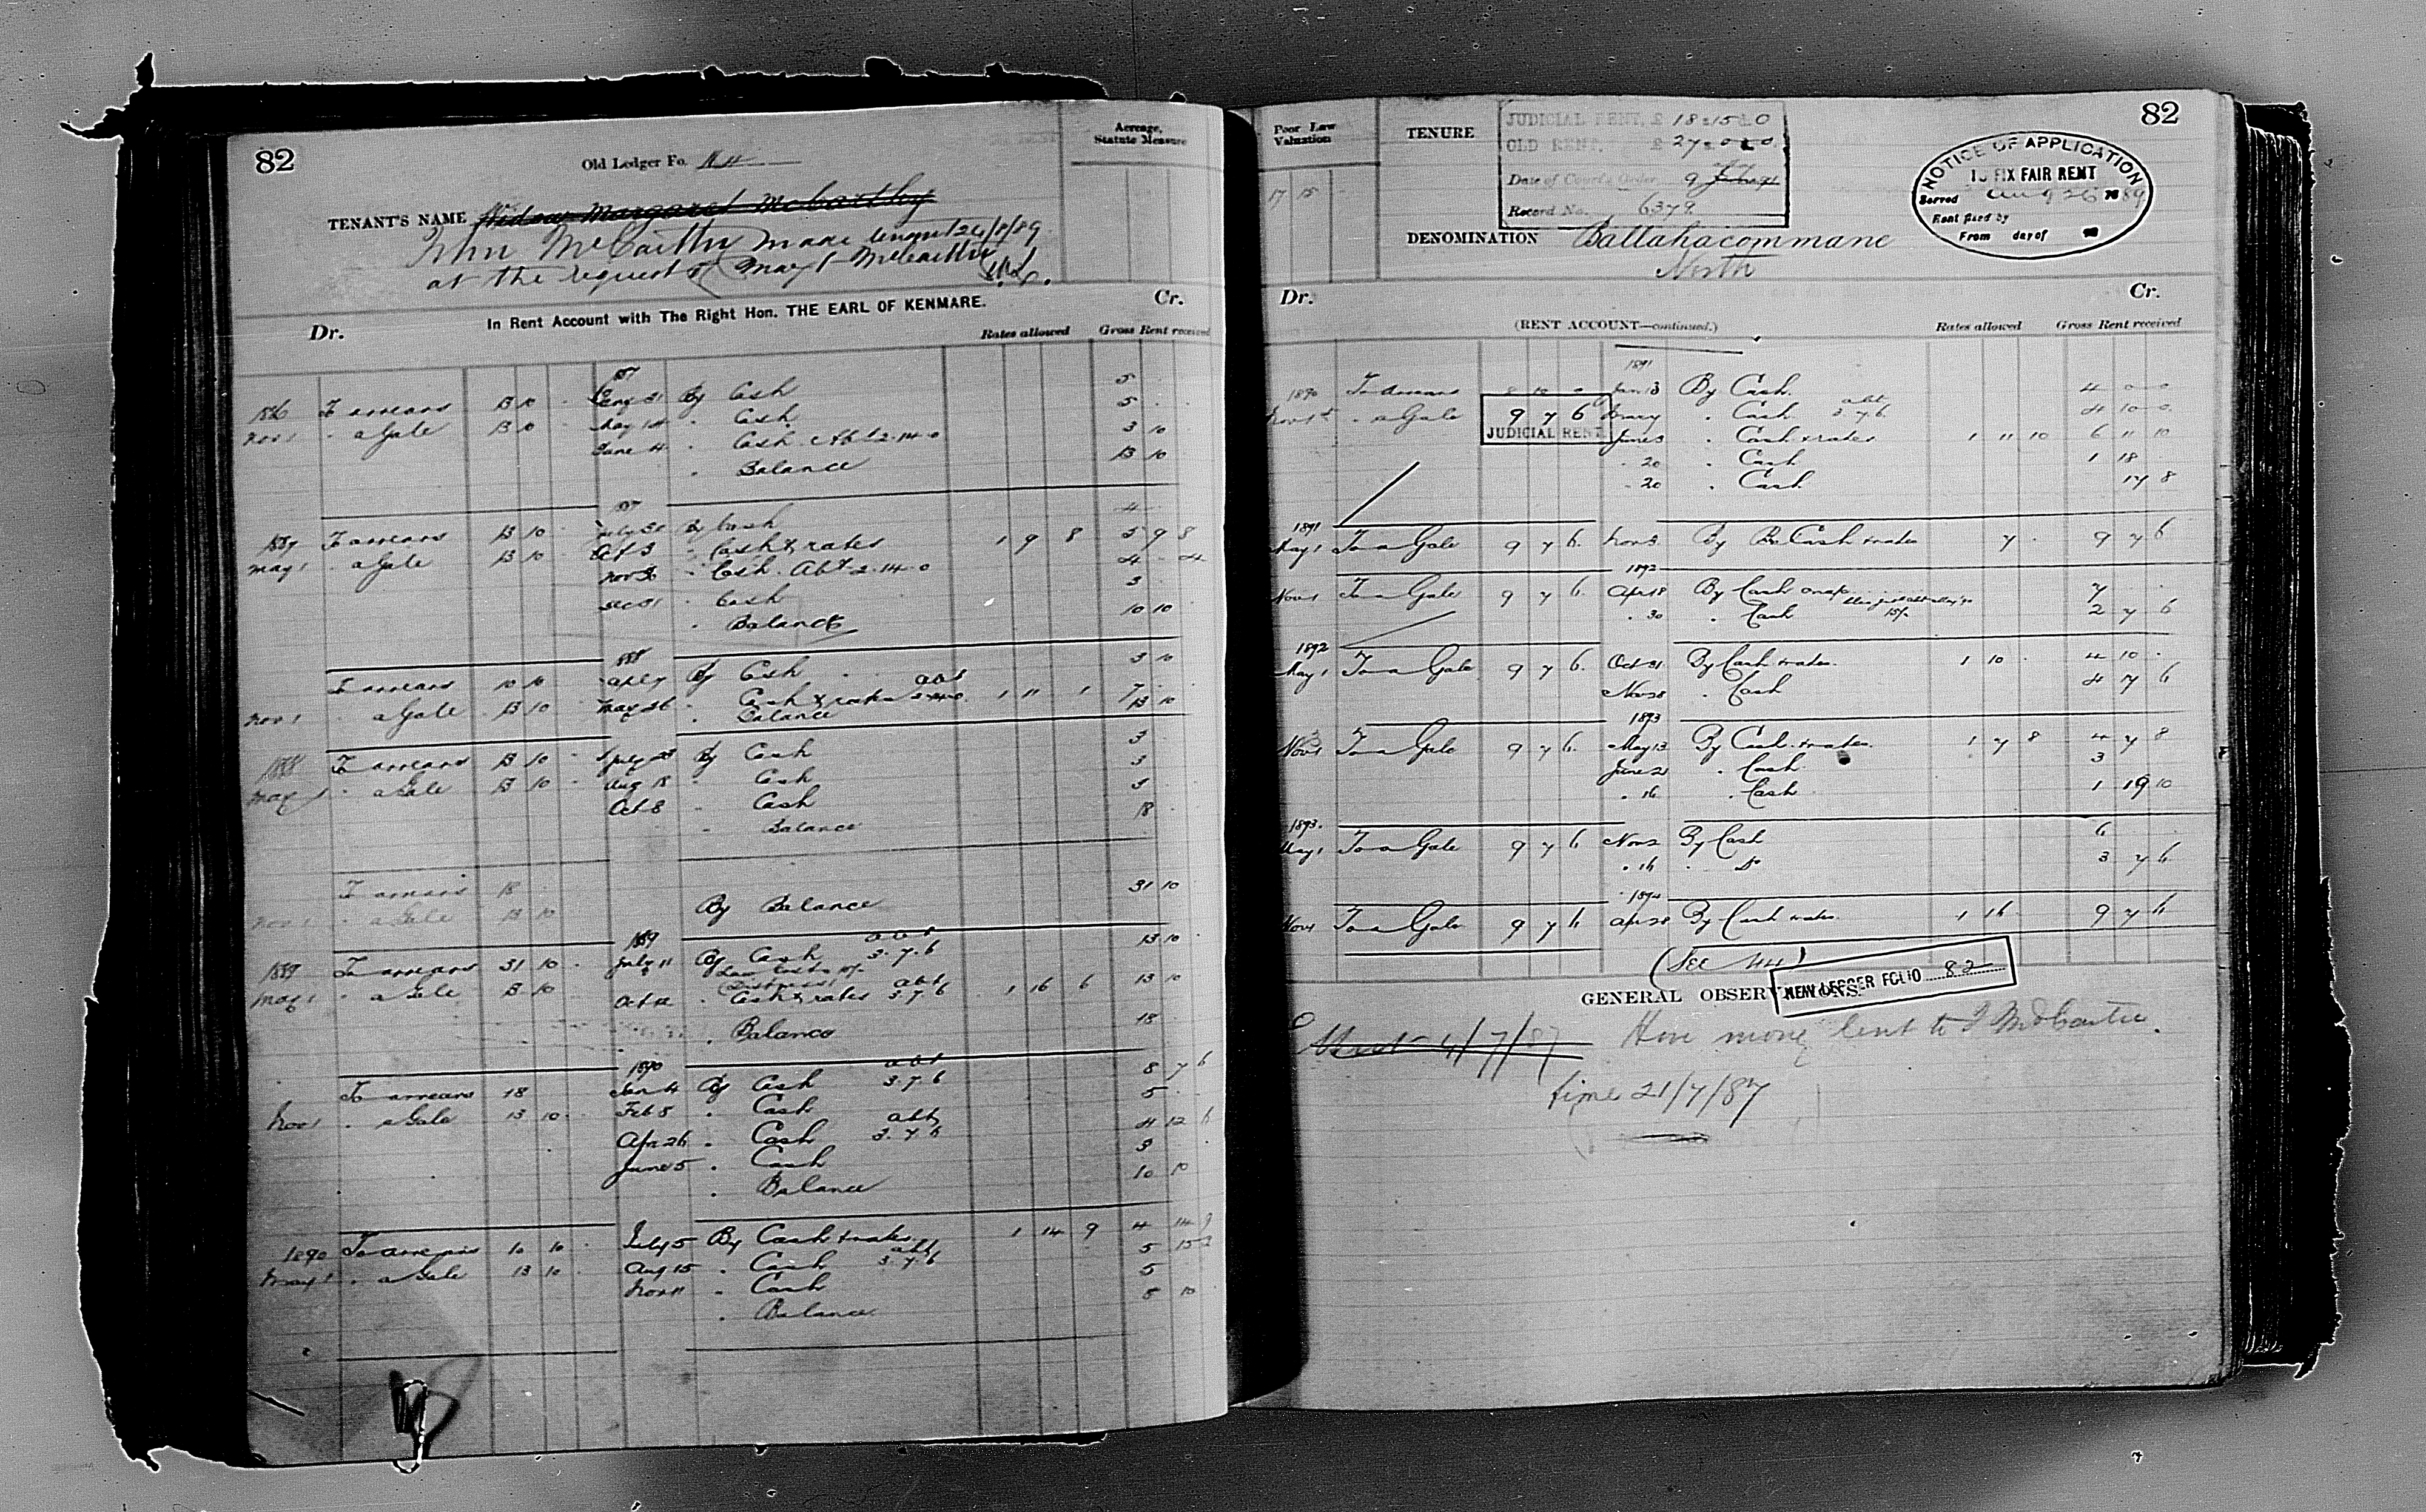 82
Old Ledger Fo.
Acreage,
Statute Measure
TENANT'S NAME Widow Margaret McCarthy
John McCarthy made tenant 24/8/89
at the request of Margt McCarthy
In Rent Account with The Right Hon. THE EARL OF KENMARE.
Dr. Cr.
Rates allowed Gross Rent received
1887
1886 To arrears 13 10 By Cash 5
Nov 1 " a Gale 13 10 May 14 " Cash 5
June 4 " Cash Abt 2-14-0 3 10
" Balance 13 10
1887
1887 To arrears 13 10 By Cash 4
May 1 " a Gale 13 10 Oct 3 " Cash & rates 1 9 8 5 9 8
" Cash Abt 2-14-0 4
Dec 31 " Cash 3
" Balance 10 10
1888
To arrears 10 10 Apl 7 By Cash 3 10
abt
Nov 1 " a Gale 13 10 May 26 " Cash & rates 2-14-0 1 11 1 7
" Balance 13 10
1888 To arrears 13 10 By Cash 3
May 1 " a Gale 13 10 Aug 18 " Cash 3
Oct 8 " Cash 3
" Balance 18
To arrears 18
Nov 1 " a Gale 13 10 By Balance 31 10
1889
1889 To arrears 31 10 July 11 By Cash abt 3.7.6 13 10
Law Costs
(Distress)
May 1 " a Gale 13 10 Oct 12 " Cash & rates abt 3.7.6 1 16 6 13 10
" Balance 18
1890
To arrears 18 Jan 4 By Cash abt 3.7.6 8 7 6
Nov 1 " a Gale 13 10 Feb 5 " Cash 5
Apr 26 " Cash abt 3.7.6 4 12 6
June 5 " Cash 3
" Balance 10 10
1890 To arrears 10 10 July 5 By Cash & rates 1 14 9 4 14 9
May 1 " a Gale 13 10 Aug 15 " Cash abt 3.7.6 5 15 3
Nov 11 " Cash 5
" Balance 8 10
82
Poor Law
Valuation
17 15
TENURE
JUDICIAL RENT, £ 18.15.0
OLD RENT, £ 27.0.0
Date of Court's Order, 9
Record No. 6379
NOTICE OF APPLICATION
TO FIX FAIR RENT
Served Aug 26 1889
Rent fixed by
From day of 18
DENOMINATION Ballahacommane
North
Dr. Cr.
(RENT ACCOUNT—continued.)
Rates allowed Gross Rent received
1891
1890 To arrears 8 10 0 Jan 13 By Cash 4 0 0
Nov 1st " a Gale 9 7 6 " Cash abt 3.7.6 4 10 0
JUDICIAL RENT
June 3 " Cash & rates 1 11 10 6 11 10
" 20 " Cash 1 18
" 20 " Cash 17 8
1891
May 1 To a Gale 9 7 6 Nov 3 By Cash & rates 7 9 7 6
1892
Nov 1 To a Gale 9 7 6 Apr 18 By Cash 7
" 30 " Cash 2 7 6
1892
May 1 To a Gale 9 7 6 Oct 31 By Cash & rates 1 10 4 10
Nov 28 " Cash 4 7 6
1893
Nov 1 To a Gale 9 7 6 May 13 By Cash & rates 1 7 8 4 7 8
June 2 " Cash 3
" 16 " Cash 1 19 10
1893
May 1 To a Gale 9 7 6 Nov 2 By Cash 6
" 16 " Do 3 7 6
1894
Nov 1 To a Gale 9 7 6 Apr 28 By Cash & rates 1 16 9 7 6
(See
NEW LEDGER FOLIO 82
GENERAL OBSERVATIONS.
4/7/87 lent to J McCartie.
time 21/7/87